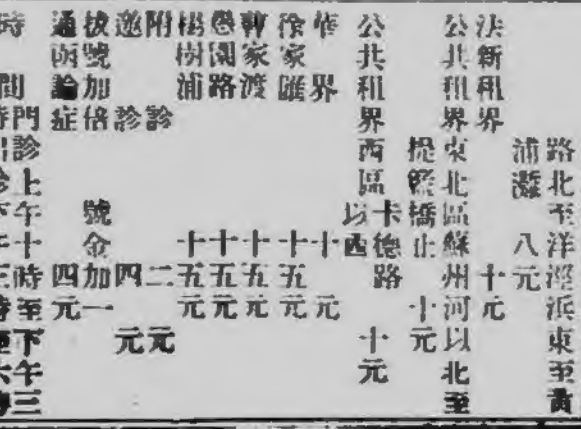 路北至洋涇浜東至黃
浦灘 八元
法新租界 十元
公共租界東北區蘇州河以北至
提籃橋止 十元
公共租界西區卡德路
以西 十元
界 十元
徐家匯 十五元
曹家渡 十五元
愚園路 十五元
楊樹浦 十五元
附診 二元
邀診 四元
拔號加倍 號金加一
通函論症 四元
門診上午十時至下午三